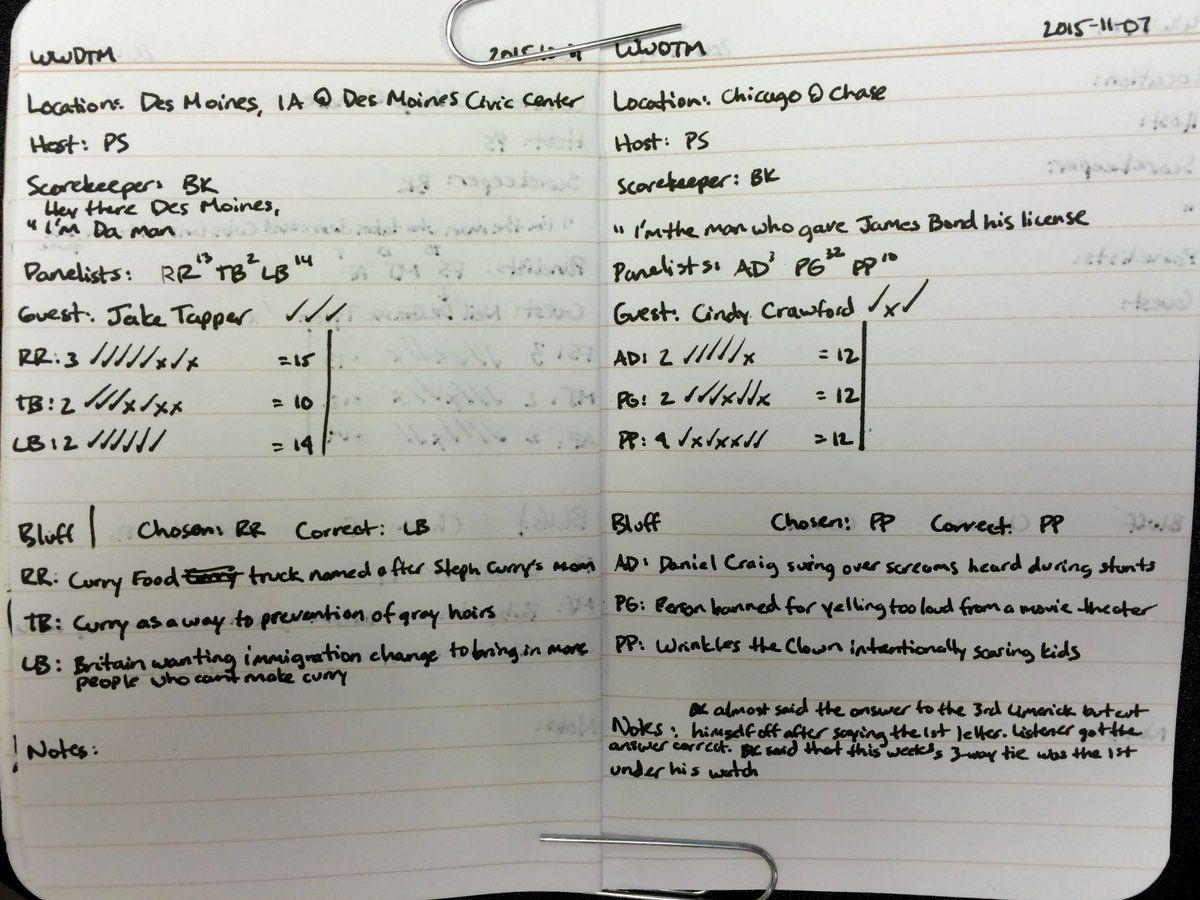 WWDTM
Location: Des Moines, IA @ Des Moines Civic Center
Host: PS
Scorekeeper: BK
Hey there Des Moines,
" I'm Da man
Panelists: RR¹³ TB² LB¹⁴
Guest: Jake Tapper ✓✓✓
RR: 3 ✓✓✓✓✓x✓x =15
TB: 2 ✓✓✓x✓xx = 10
LB: 2 ✓✓✓✓✓✓ = 14
Bluff | Chosen: RR Correct: LB
RR: Curry Food truck named after Steph Curry's mom
TB: Curry as a way to prevention of gray hairs
LB: Britain wanting immigration change to bring in more
people who can't make curry
Notes:
2015-11-07
WWDTM
Location: Chicago @ Chase
Host: PS
Scorekeeper: BK
" I'm the man who gave James Bond his license
Panelists: AD³ PG³² PP¹⁰
Guest: Cindy Crawford ✓x✓
AD: 2 ✓✓✓✓✓x = 12
PG: 2 ✓✓✓x✓✓x = 12
PP: 4 ✓x✓xx✓✓ = 12
Bluff Chosen: PP Correct: PP
AD: Daniel Craig suing over screams heard during stunts
PG: Person banned for yelling too loud from a movie theater
PP: Wrinkles the Clown intentionally scaring kids
BK almost said the answer to the 3rd Limerick but cut
Notes: himself off after saying the 1st letter. Listener got the
answer correct. BK said that this week's 3-way tie was the 1st
under his watch